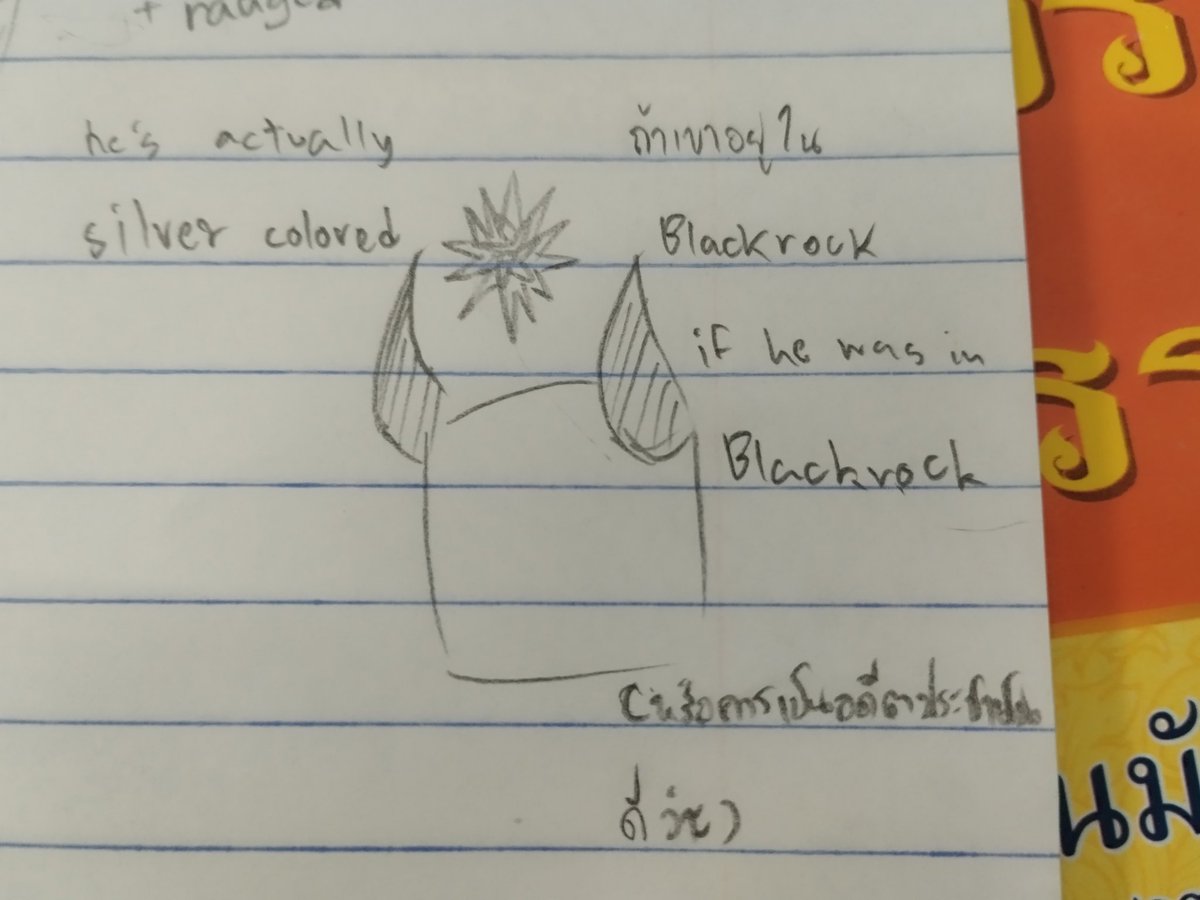 +
he's actually
silver colored
ถ้าเขาอยู่ใน
Blackrock
if he was in
Blackrock
(หรือการเป็นอดีต
นมั